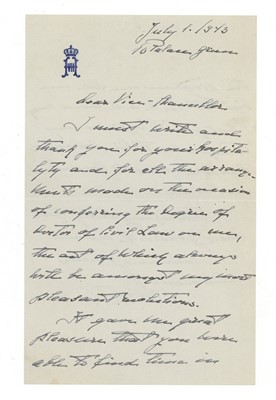 July 1. 1943
10 Palace Green
Dear Vice-Chancellor
I must write and
thank you for your hospita-
lyty and for all the arrange-
ments made on the occasion
of conferring the Degree of
Doctor of Civil Law on me,
the act of which always
will be amongst my most
pleasant
It gave me great
pleasure that you were
able to find time in